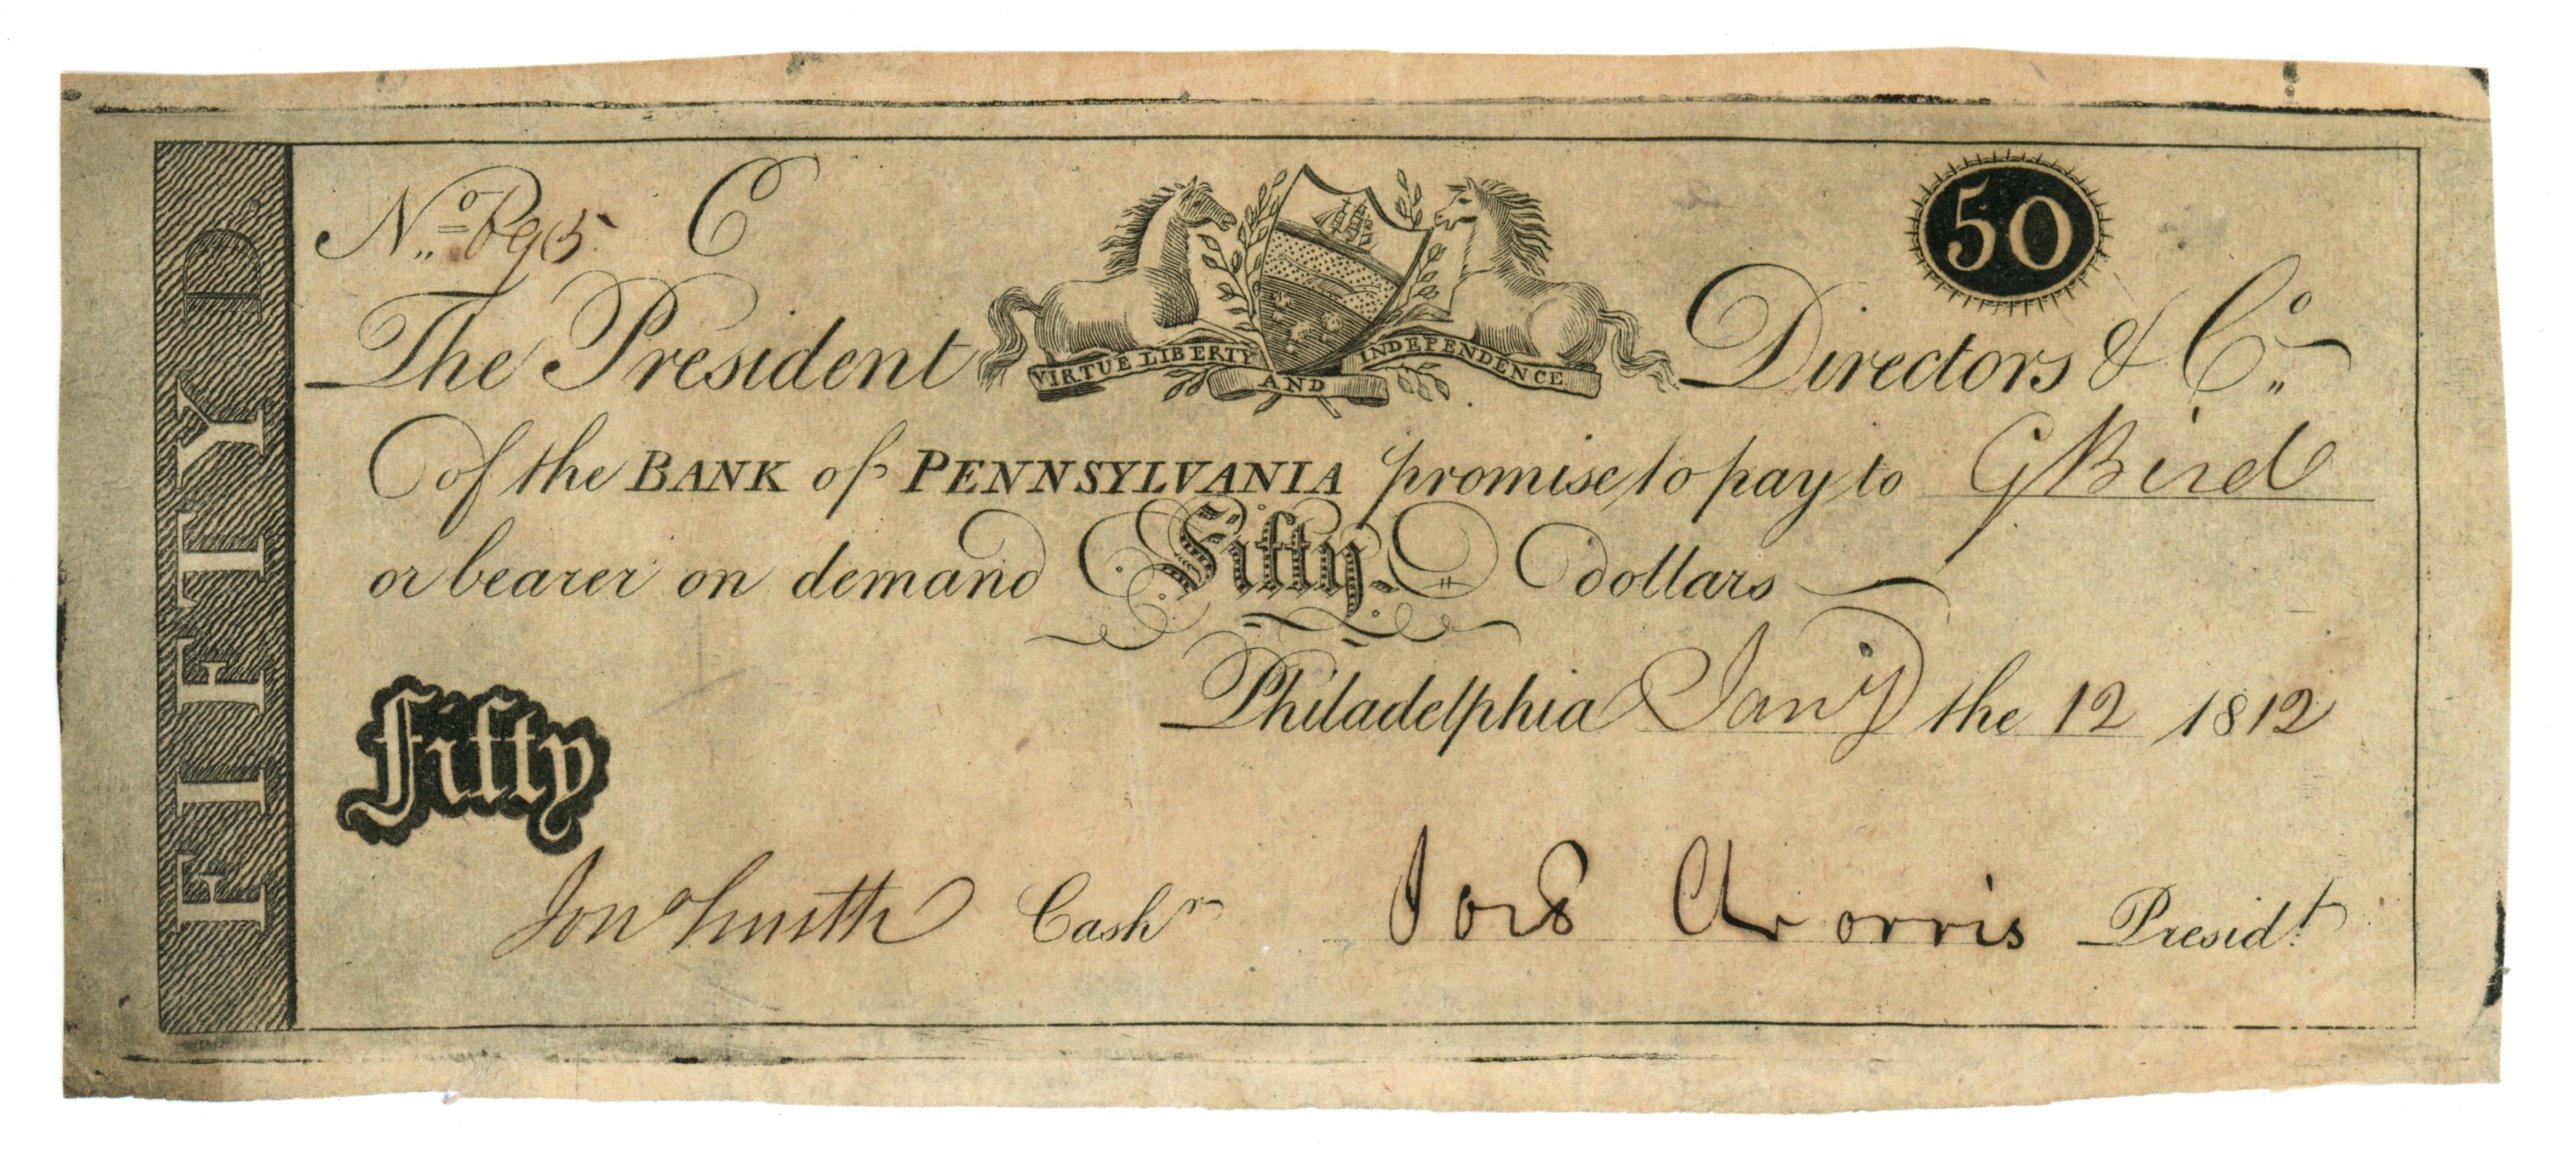 FIFTY D.
No. 6905 C
50
The President Directors & Co.
VIRTUE LIBERTY AND INDEPENDENCE
of the BANK of PENNSYLVANIA promise to pay to G Bird
or bearer on demand Fifty dollars
Philadelphia Jany the 12 1812
Fifty
Jon Smith Cashr Jos Morris Presidt.